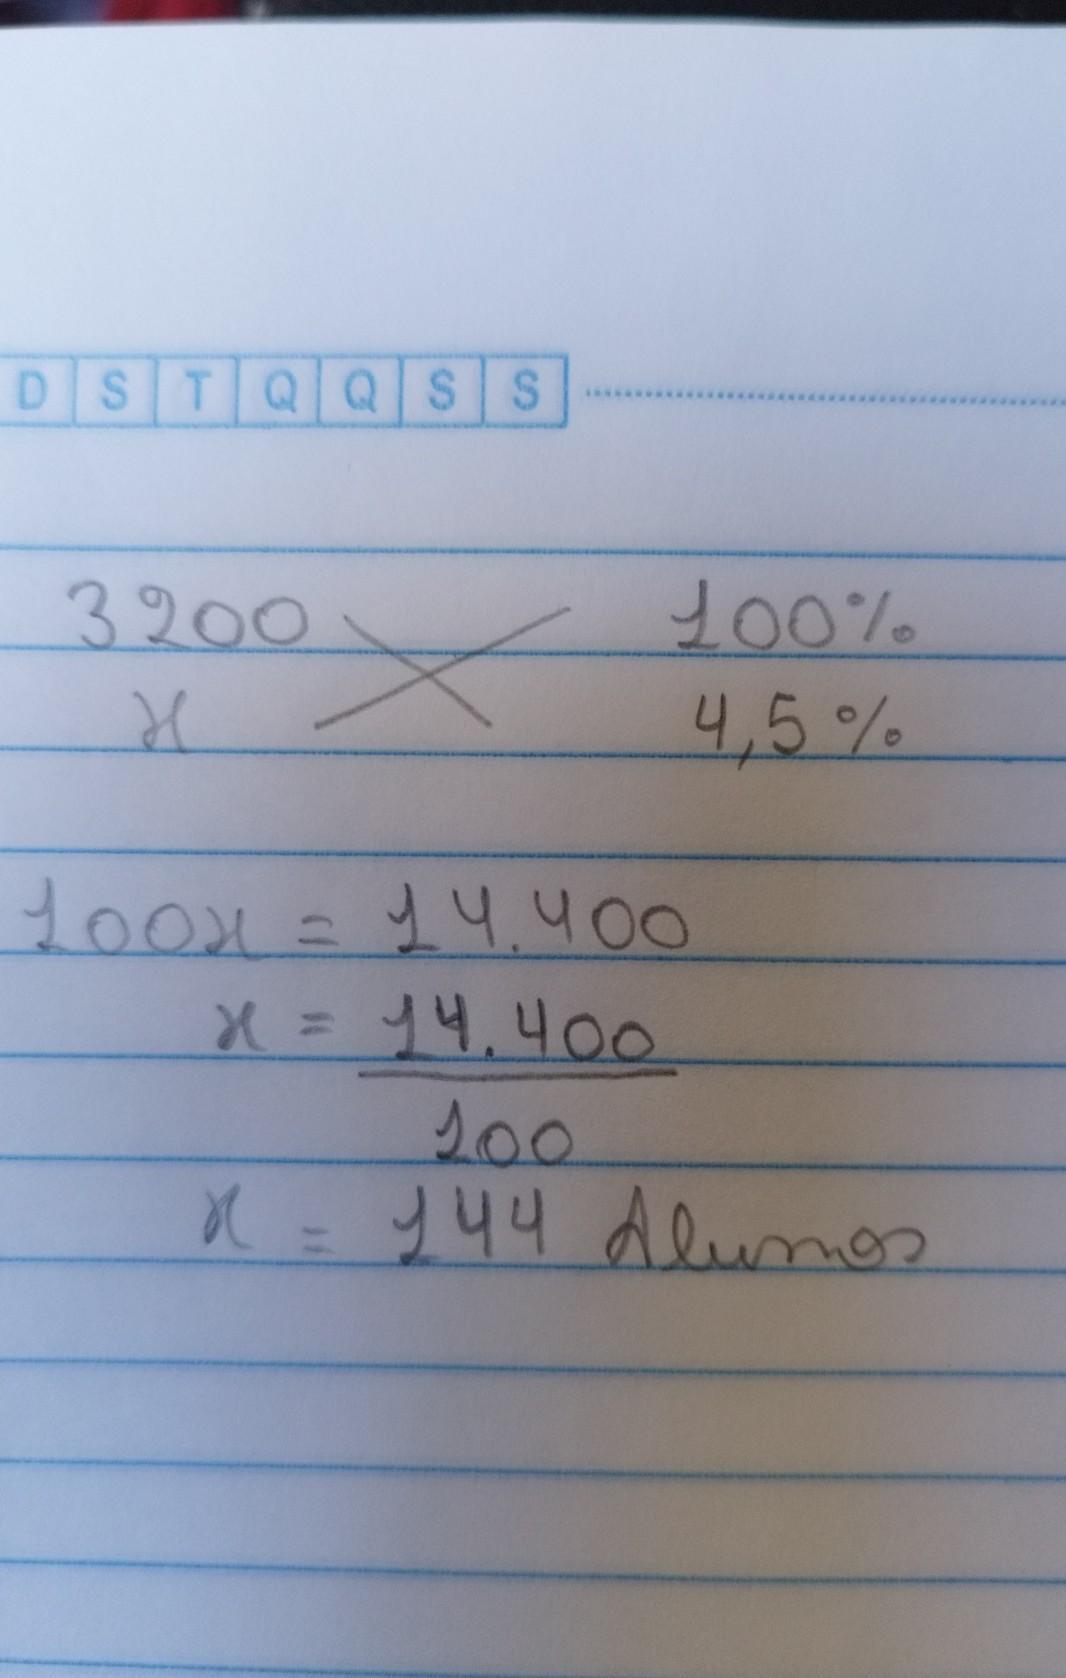 D S T Q Q S S
3200 100%
x 4,5%
100x = 14.400
x = 14.400
100
x = 144 Alunos